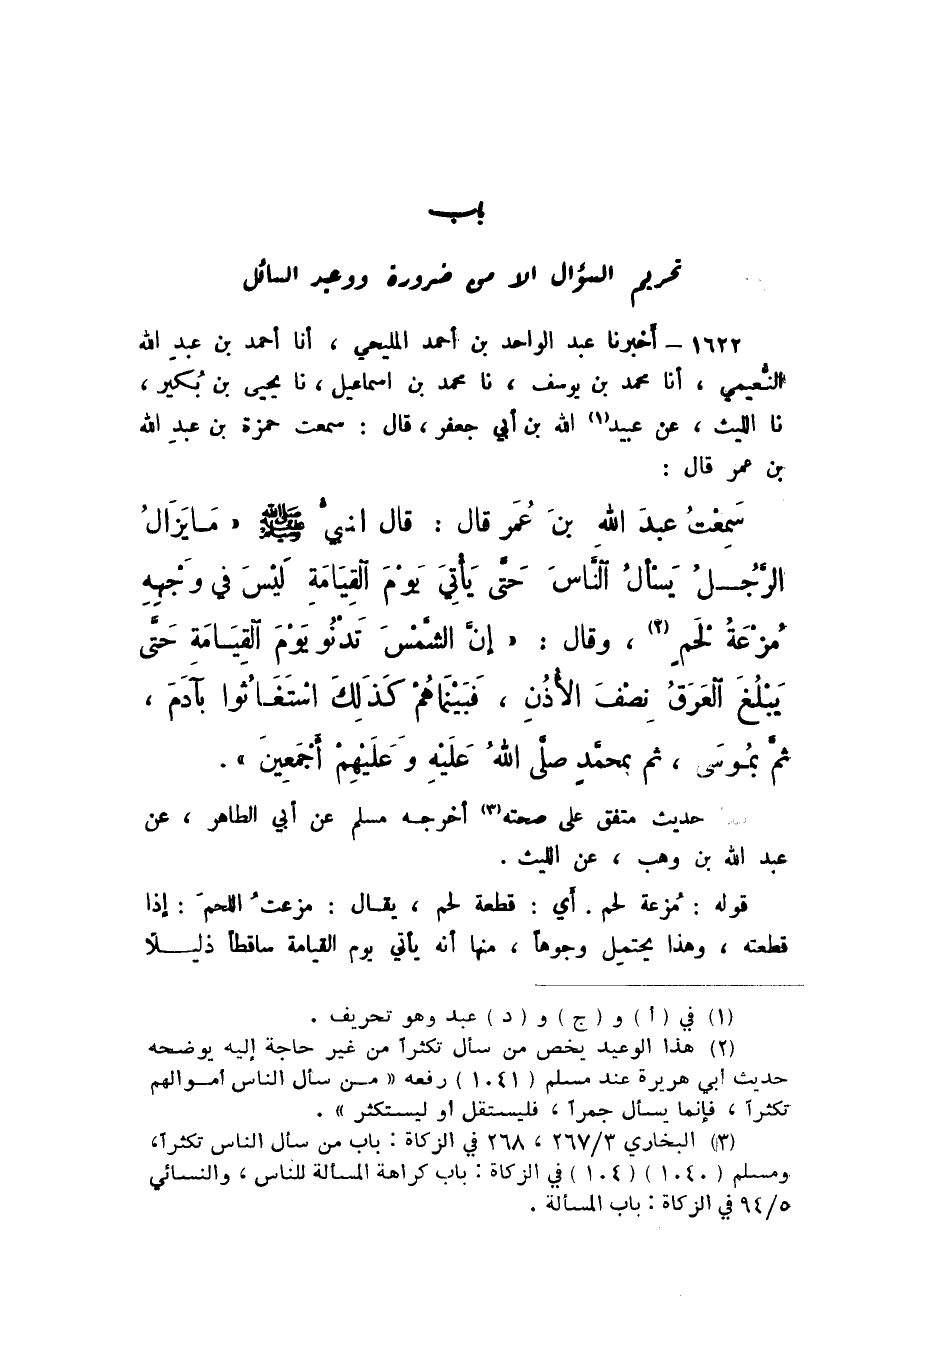 باب
تحريم السؤال الا من ضرورة ووعيد السائل
١٦٢٢ – أَخبرنا عبد الواحد بن أحمد المليحي ، أنا أحمد بن عبدِ الله
النُّعيمي ، أنا محمد بن يوسف ، نا محمد بن اسماعيل ، نا يحيى بن بُكير ،
نا الليث ، عن عبيد(١) الله بن أبي جعفر ، قال : سمعت حمزة بن عبدِ الله
بن عمر قال :
سَمِعْتُ عبدَ اللهِ بنَ عُمَر قال : قال النبيُّ ﷺ « مَـايَزَالُ
الرَّجُــلُ يَسْأَلُ ٱلنَّاسَ حَتَّى يَأْتِيَ يَوْمَ ٱلقِيَامَةِ لَيْسَ في وَجْهِهِ
مُزْعَةُ لَحْمٍ (٢) ، وقال : « إنَّ الشَّمْسَ تَدْنُو يَوْمَ ٱلقِيَـامَةِ حَتَّى
يَبْلُغَ ٱلعَرَقُ نِصْفَ الأُذُنِ ، فَبَيْنَاهُمْ كَذَلِكَ اسْتَغَـاثُوا بِآدَمَ ،
ثمَّ بمُوسَى ، ثم بمحمَّدٍ صلَّى اللهُ عَلَيْهِ وَعَلَيْهِمْ أَجْمَعِينَ » .
حديث متفق على صحته(٣) أخرجـه مسلم عن أبي الطاهر ، عن
عبد الله بن وهب ، عن الليث .
قوله : مُزعة لحم . أي : قطعة لحم ، يقـال : مزعتُ اللحمَ : إذا
قطعته ، وهذا يحتمل وجوهاً ، منها أنه يأتي يوم القيامة ساقطاً ذليـــلًا
(١) في ( أ ) و ( ج ) و ( د ) عبد وهو تحريف .
(٢) هذا الوعيد يخص من سأل تكثراً من غير حاجة إليه يوضحه
حديث أبي هريرة عند مسلم ( ١٠٤١ ) رفعه « مـن سأل الناس أمـوالهم
تكثراً ، فإنما يسأل جمراً ، فليستقل أو ليستكثر » .
(٣) البخاري ٢٦٧/٣ ، ٢٦٨ في الزكاة : باب من سأل الناس تكثراً،
ومسلم ( ١٠٤٠ ) ( ١٠٤ ) في الزكاة : باب كراهة المسألة للناس ، والنسائي
٩٤/٥ في الزكاة : باب المسألة .